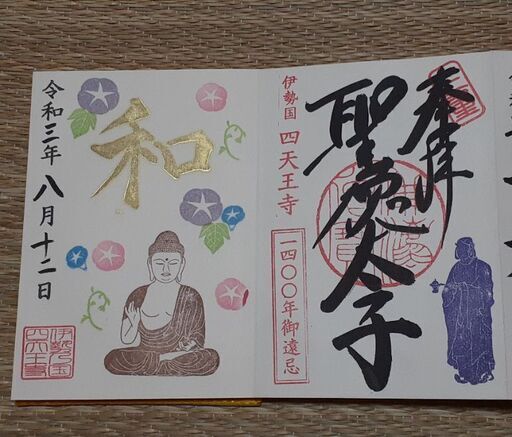 奉拝
聖徳太子
伊勢国 四天王寺
一四〇〇年御遠忌
和
令和三年 八月十二日
伊勢之国
四天王寺